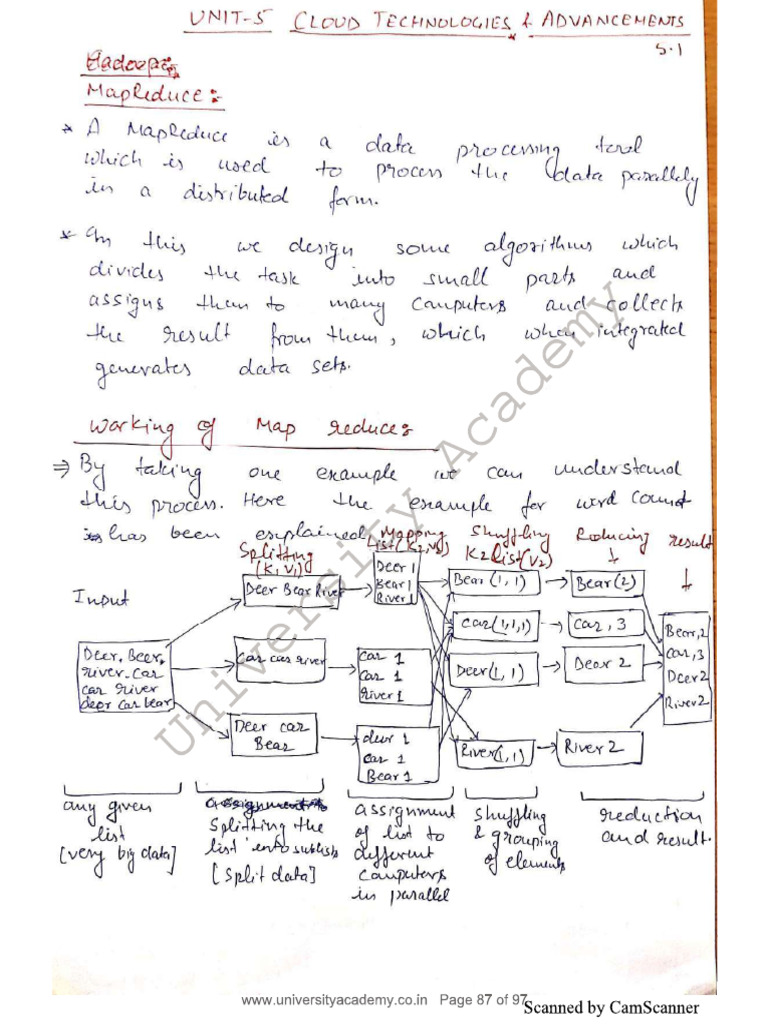 UNIT-5 CLOUD TECHNOLOGIES & ADVANCEMENTS
5.1
MapReduce:
* A MapReduce is a data processing tool
which is used to process the data parallely
in a distributed form.
* In this we design some algorithms which
divides the task into small parts and
assigns them to many computers and collects
the result from them, which when integrated
generates data sets.
Working of Map reduce:
⇒ By taking one example we can understand
this process. Here the example for word count
has been explained.
Splitting
(K1, V1)
Mapping
List(K2, V2)
Shuffling
K2 List(V2)
Reducing
result
Input
Deer, Beer,
river. Car
car river
deer car bear
Deer Bear River
Car car river
Deer car
Bear
Deer 1
Bear 1
River 1
Car 1
Car 1
River 1
deer 1
Car 1
Bear 1
Bear (1, 1)
Car (1,1,1)
Deer (1, 1)
River (1, 1)
Bear (2)
Car, 3
Dear 2
River 2
Bear, 2
Car, 3
Deer 2
River 2
any given
list
[very big data]
Splitting the
list into sublists
[split data]
assignment
of list to
different
computers
in parallel
shuffling
& grouping
of elements
reduction
and result.
University Academy
www.universityacademy.co.in Page 87 of 97
Scanned by CamScanner